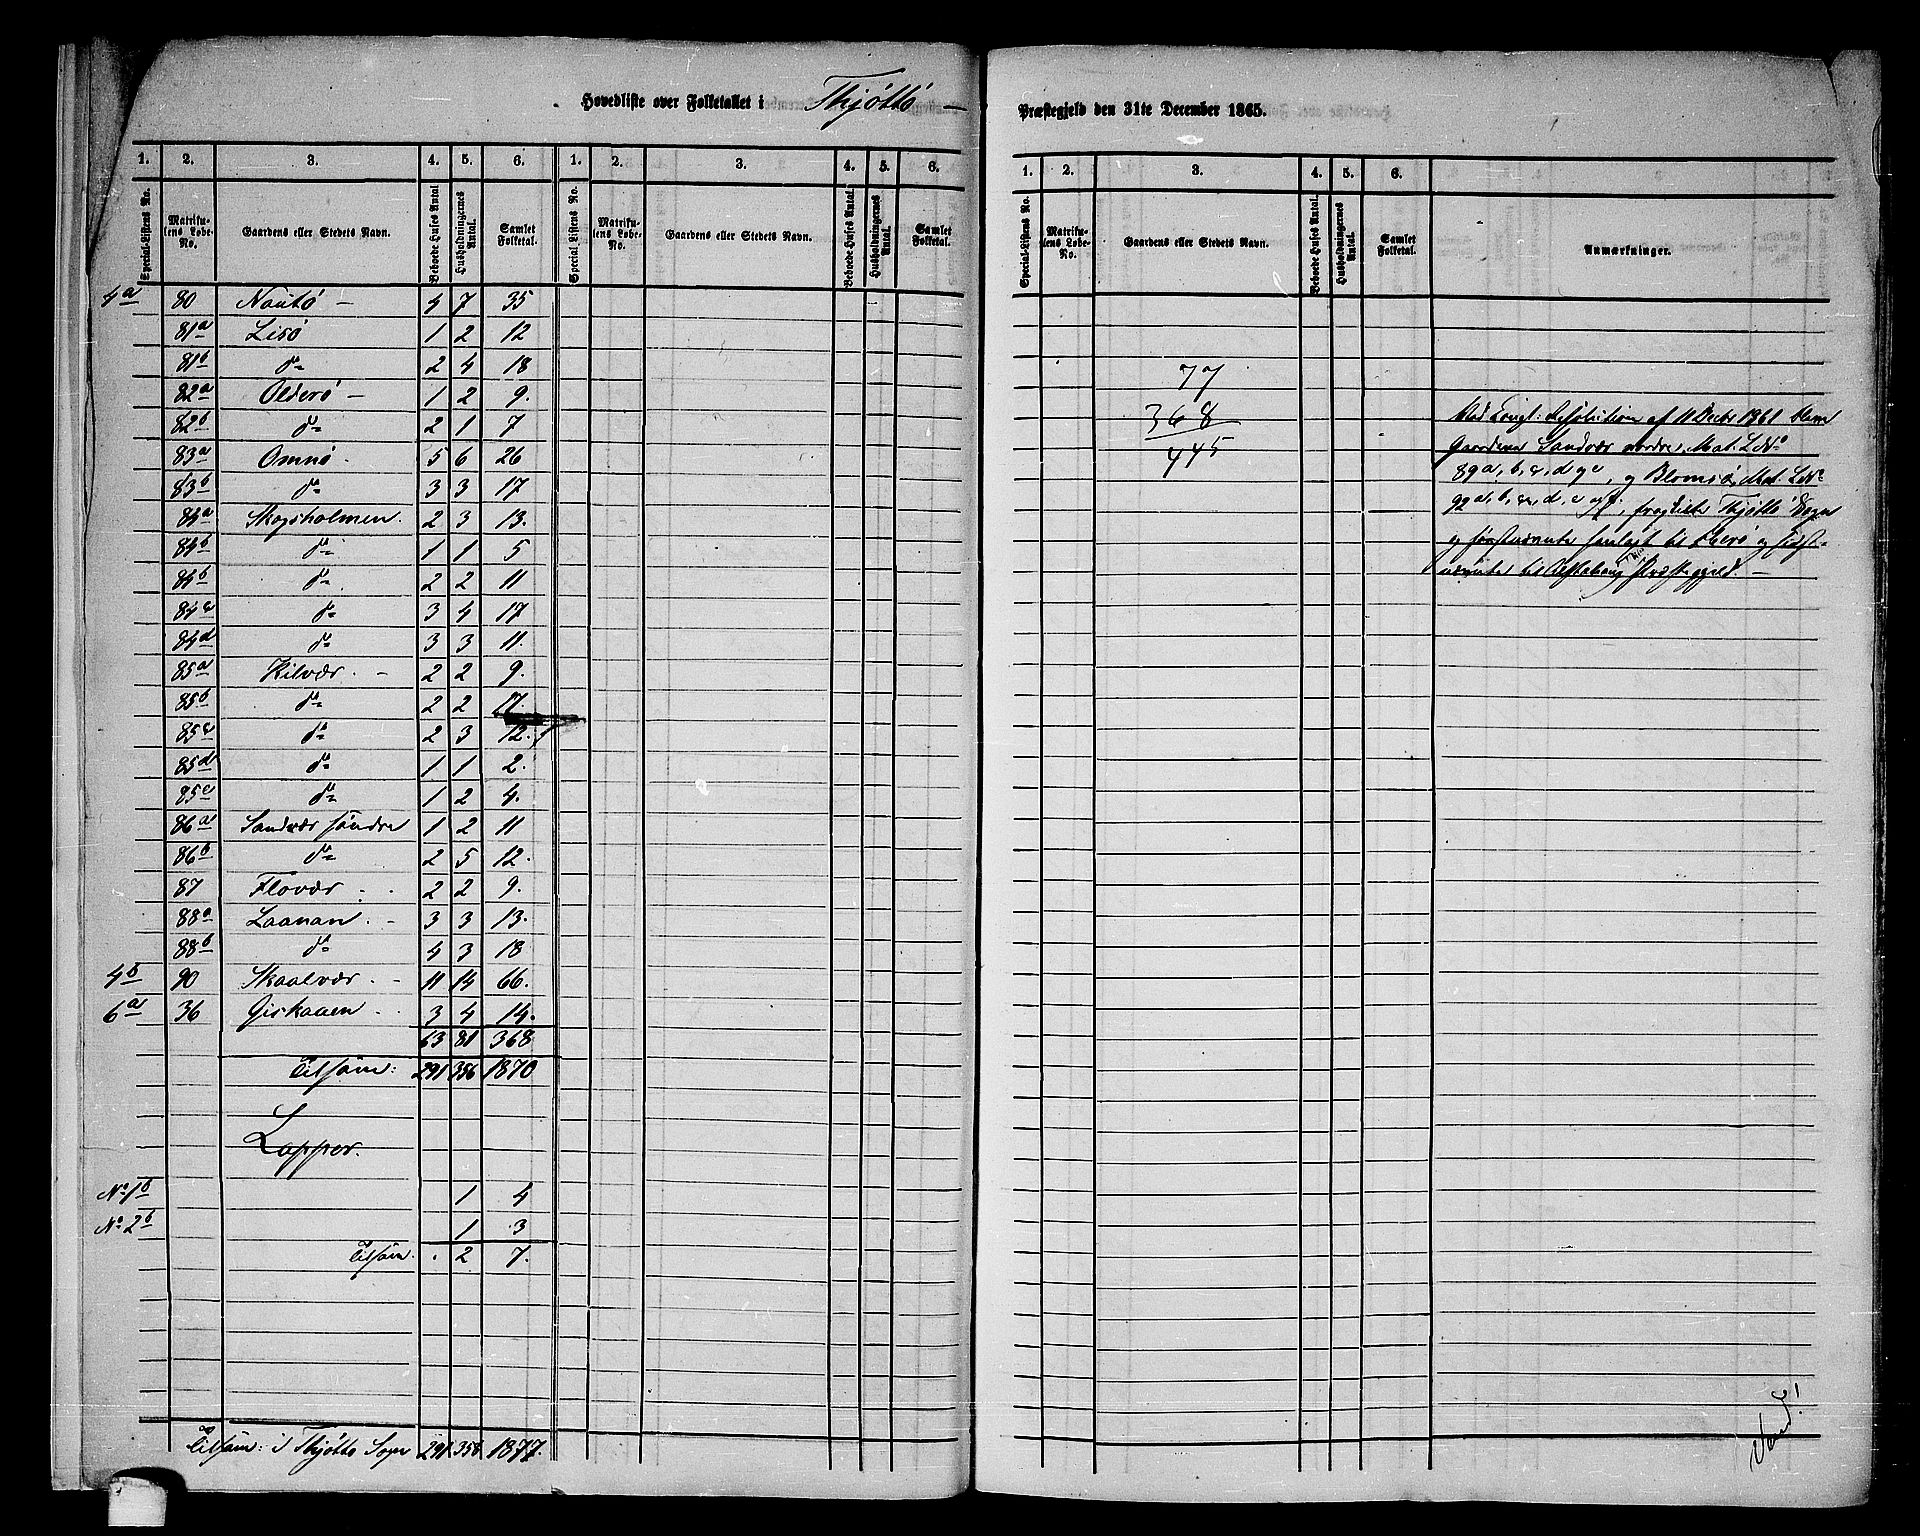 Hovedliste over Folketallet i Thjøttø
Præstegjeld den 31te December 1865.
1. 2. 3. 4. 5. 6. 1. 2. 3. 4. 5. 6.
Special-Listens No. Matrikulens Løbe-No. Gaardens eller Stedets Navn. Beboede Huses Antal Husholdningernes Antal. Samlet Folketal. Special-Listens No. Matrikulens Løbe-No. Gaardens eller Stedets Navn. Beboede Huses Antal. Husholdningernes Antal. Samlet Folketal.
4a 80 Nautø – 4 7 35
81a Lisø 1 2 12
81b do 2 4 18
82a Olderø – 1 2 9.
82b do 2 1 7
83a Omnø . 5 6 26
83b do 3 3 17
84a Skogsholmen. 2 3 13.
84b do 1 1 5
84b do 2 2 11
84c do 3 4 17
84d do 3 3 11.
85a Hilvær . – 2 2 9.
85b do 2 2 17.
85c do 2 3 12.
85d do 1 1 2.
85e do 1 2 4.
86a Sandvær søndre 1 2 11
86b do 2 5 12.
87 Flovær . . 2 2 9.
88a Laanan . – 3 3 13.
88b do 4 3 18
4b 90 Skaalvær . – 11 14 66.
6a 36 Giskaaen . . 3 4 14.
63 81 368
Tilsam: 291 356 1870
Lapper.
No 1b 1 4
No 2b 1 3
Tilsam. . 2 7.
Tilsam: i Thjøttø Sogn 291 358 1877.
1. 2. 3. 4. 5. 6.
Special-Listens No. Matrikulens Løbe-No. Gaardens eller Stedets Navn. Beboede Huses Antal. Husholdningernes Antal. Samlet Folketal. Anmærkninger.
77
368
445
Ved Kongl: Resolution af 11 Decbr 1861 blev
Gaardene Sandvær nordre, Mat. L No
89 a, b, c, d og e, og Blomsø, Mat. L No
92 a, b, c, d, e og f, fraskilt Thjøttø Sogn
og førstnævnte henlagt til Herø og sidst-
nævnte til Alstahoug Præstegjeld. –
Vend!